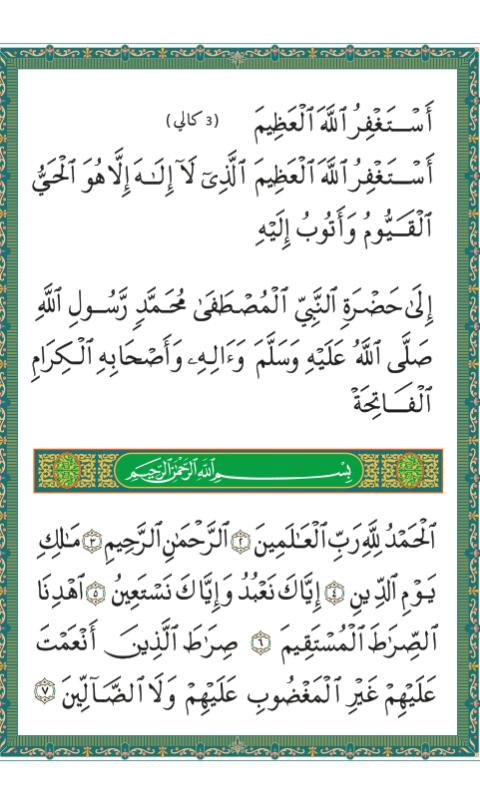 أَسْتَغْفِرُ ٱللَّهَ ٱلْعَظِيمَ (3 كالي)
أَسْتَغْفِرُ ٱللَّهَ ٱلْعَظِيمَ ٱلَّذِيٓ لَآ إِلَـٰهَ إِلَّا هُوَ ٱلْحَيُّ
ٱلْقَيُّومُ وَأَتُوبُ إِلَيْهِ
إِلَىٰ حَضْرَةِ ٱلنَّبِيِّ ٱلْمُصْطَفَىٰ مُحَمَّدٍ رَّسُولِ ٱللَّهِ
صَلَّى ٱللَّهُ عَلَيْهِ وَسَلَّمَ وَءَالِهِۦ وَأَصْحَابِهِ ٱلْكِرَامِ
ٱلْفَاتِحَةْ
بِسْمِ ٱللَّهِ ٱلرَّحْمَٰنِ ٱلرَّحِيمِ
ٱلْحَمْدُ لِلَّهِ رَبِّ ٱلْعَـٰلَمِينَ ٢ ٱلرَّحْمَـٰنِ ٱلرَّحِيمِ ٣ مَـٰلِكِ
يَوْمِ ٱلدِّينِ ٤ إِيَّاكَ نَعْبُدُ وَإِيَّاكَ نَسْتَعِينُ ٥ ٱهْدِنَا
ٱلصِّرَٰطَ ٱلْمُسْتَقِيمَ ٦ صِرَٰطَ ٱلَّذِينَ أَنْعَمْتَ
عَلَيْهِمْ غَيْرِ ٱلْمَغْضُوبِ عَلَيْهِمْ وَلَا ٱلضَّآلِّينَ ٧